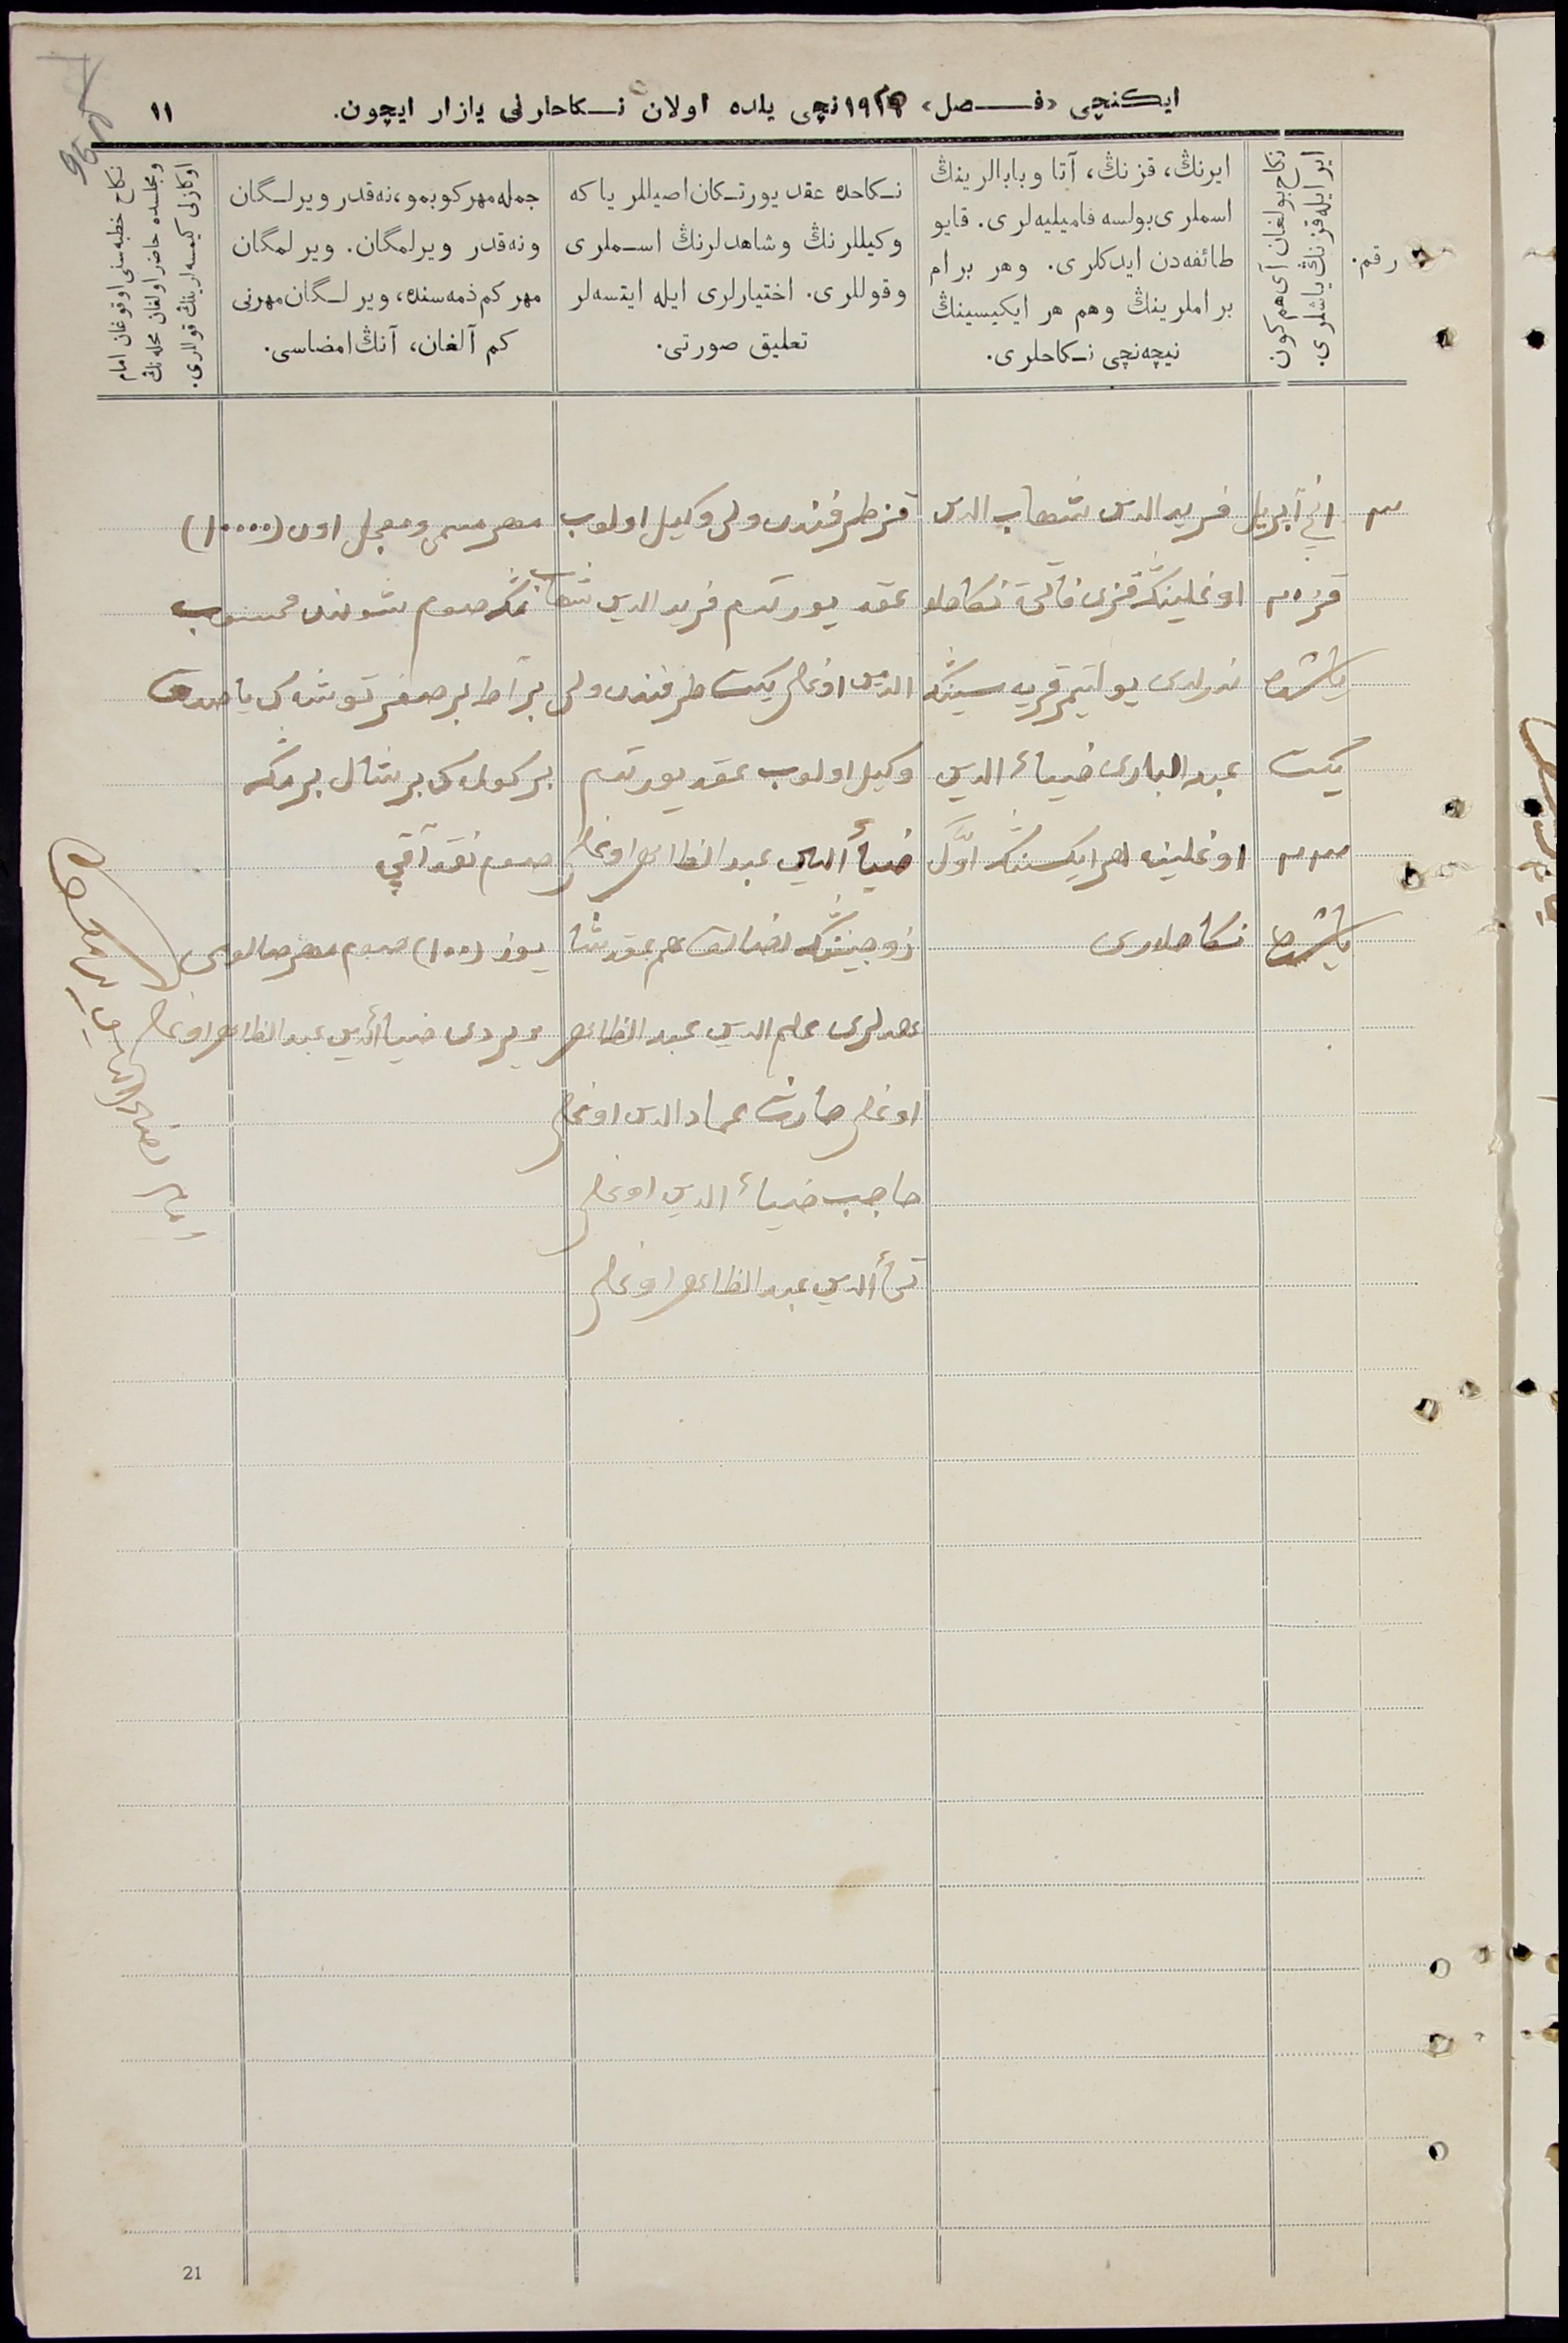 ایکنچی «فصل» ۱۹۲۵نچی یلده اولان نکاحلرنی یازار ایچون.
۱۱
رقم.
نکاح بولغان آی هم کون
ایر ایله قزنڭ یاشلری.
ایرنڭ، قزنڭ، آتا و بابالرینڭ
اسملری بولسه فامیلیه‌لری. قایو
طائفه‌دن ایدکلری. وهر برام
براملرینڭ وهم هر ایکیسینڭ
نیچه‌نچی نکاحلری.
نکاحده عقد یورتکان اصیللر یا که
وکیللرنڭ وشاهدلرنڭ اسملری
وقوللری. اختیارلری ایله ایتسه‌لر
تعلیق صورتی.
جمله مهر کوبمو، نه‌قدر ویرلگان
ونه‌قدر ویرلمگان. ویرلمگان
مهر کم ذمه‌سنده، ویرلگان مهرنی
کم آلغان، آنڭ امضاسی.
نکاح خطبه‌سنی اوقوغان امام
ومجلسده حاضر اولغان محله‌نڭ
اوکازلی کیمسه‌لرینڭ قوللری.
۳
آپریل
قز ۲۰
یاشنده
یکت
۲۳
یاشنده
فرید الدین شهاب الدین
اوغلینڭ قزی نکاحلا
قریه سینڭ
عبد الباری ضیاء الدین
اوغلینه هر ایکسینڭ اوّل
نکاحلاری
قز طرفندن ولی وکیل اولوب
عقد یورتدم فرید الدین شهاب
الدین اوغلی یکت طرفندن ولی
وکیل اولوب عقد یورتدم
ضیاء الدین عبد الظاهر اوغلی
زوجینڭ رضالق هم عقد شا
هدلری علم الدین عبد الظاهر
اوغلی حارث عماد الدین اوغلی
حاجب ضیاء الدین اوغلی
الدین عبد الظاهر اوغلی
مهر مسمی ومعجل اون (۱۰۰۰۰)
مڭ صوم شوندن محسوب
بر آط بر صغر توشک یاصدق
بر کولمک بر شال بر مڭ
صوم نقد آقچه
یوز (۱۰۰) صوم مهر صالوی
ویردی ضیاء الدین عبد الظاهر اوغلی
21